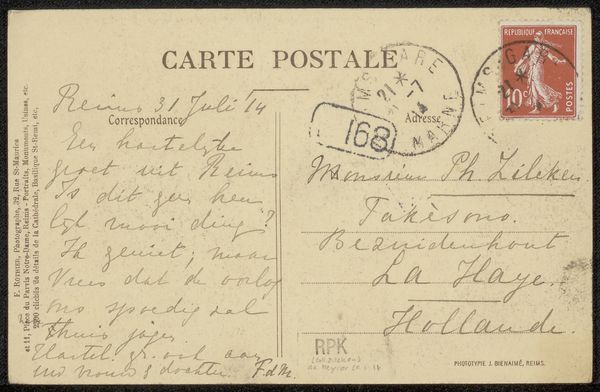 CARTE POSTALE
Correspondance
Adresse
Reims 31 Juli 14
Een hartelijke
groet uit Reims
Is dit geen heer
lijk mooi ding?
Ik geniet, maar
Vrees dat de oorlog
ons spoedig zal
thuis jagen
Hartel. gr. ook aan
uw vrouw & dochter F.d.M.
Monsieur Ph Zilcken
Bezuidenhout
La Haye.
Hollande.
168
REIMS-GARE
21*
-7
14
MARNE
RÉPUBLIQUE FRANÇAISE
10c
POSTES
RPK
PHOTOTYPIE J. BIENAIMÉ, REIMS.
F. ROTHIER, Photographe, 32, Rue St-Maurice
et 11, Place du Parvis Notre-Dame, Reims - Portraits, Monuments, Usines, etc.
2200 clichés de détails de la Cathédrale, Basilique St-Remi, etc.